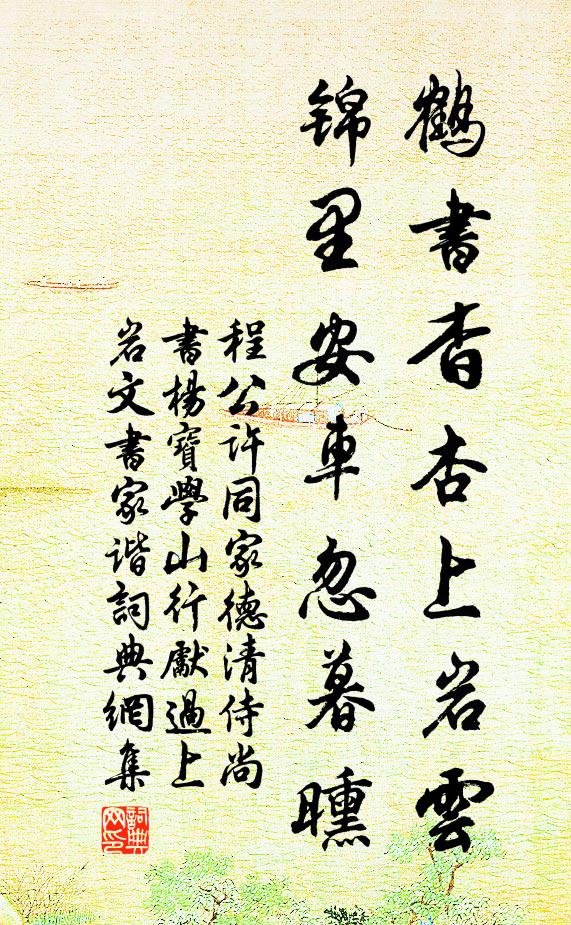 鶴書杳杏上岩雲
錦里安車忽暮曛
程公許同家德清侍尚
書楊寶學山行獻過上
岩文書家谐詞典網集
詞典网印